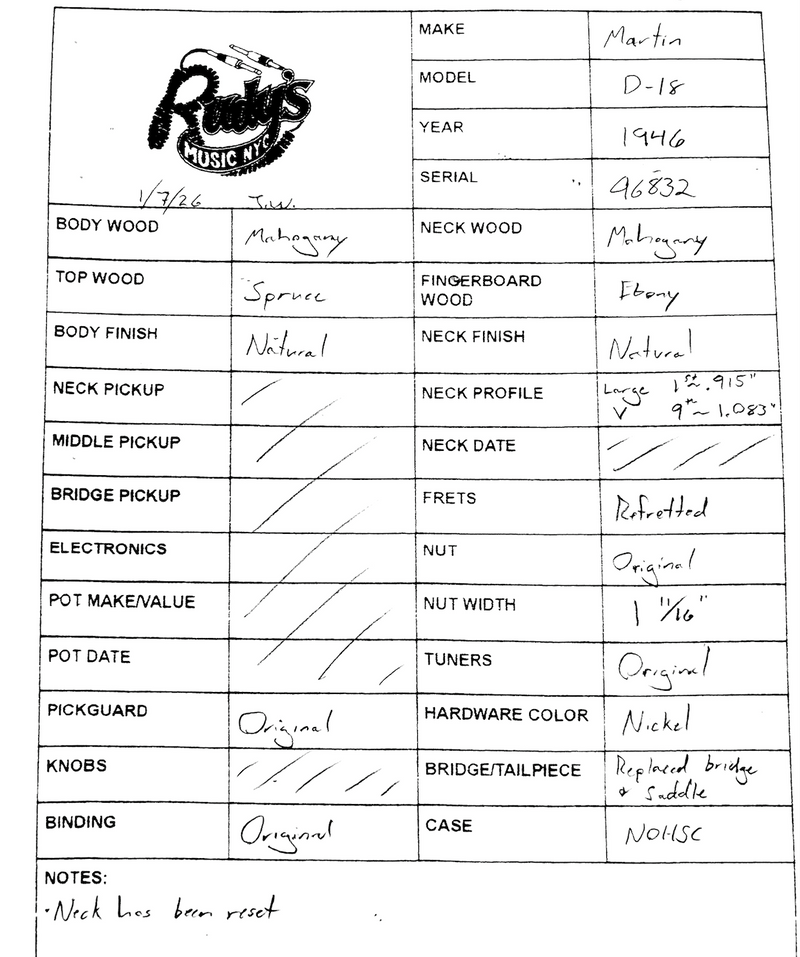 Rudy's
MUSIC NYC
1/7/26 J.W.
MAKE Martin
MODEL D-18
YEAR 1946
SERIAL 96832
BODY WOOD Mahogany NECK WOOD Mahogany
TOP WOOD Spruce FINGERBOARD WOOD Ebony
BODY FINISH Natural NECK FINISH Natural
NECK PICKUP NECK PROFILE Large V 1st ~ .915" 9th ~ 1.083"
MIDDLE PICKUP NECK DATE
BRIDGE PICKUP FRETS Refretted
ELECTRONICS NUT Original
POT MAKE/VALUE NUT WIDTH 1 11/16"
POT DATE TUNERS Original
PICKGUARD Original HARDWARE COLOR Nickel
KNOBS BRIDGE/TAILPIECE Replaced bridge & saddle
BINDING Original CASE NOHSC
NOTES:
· Neck has been reset